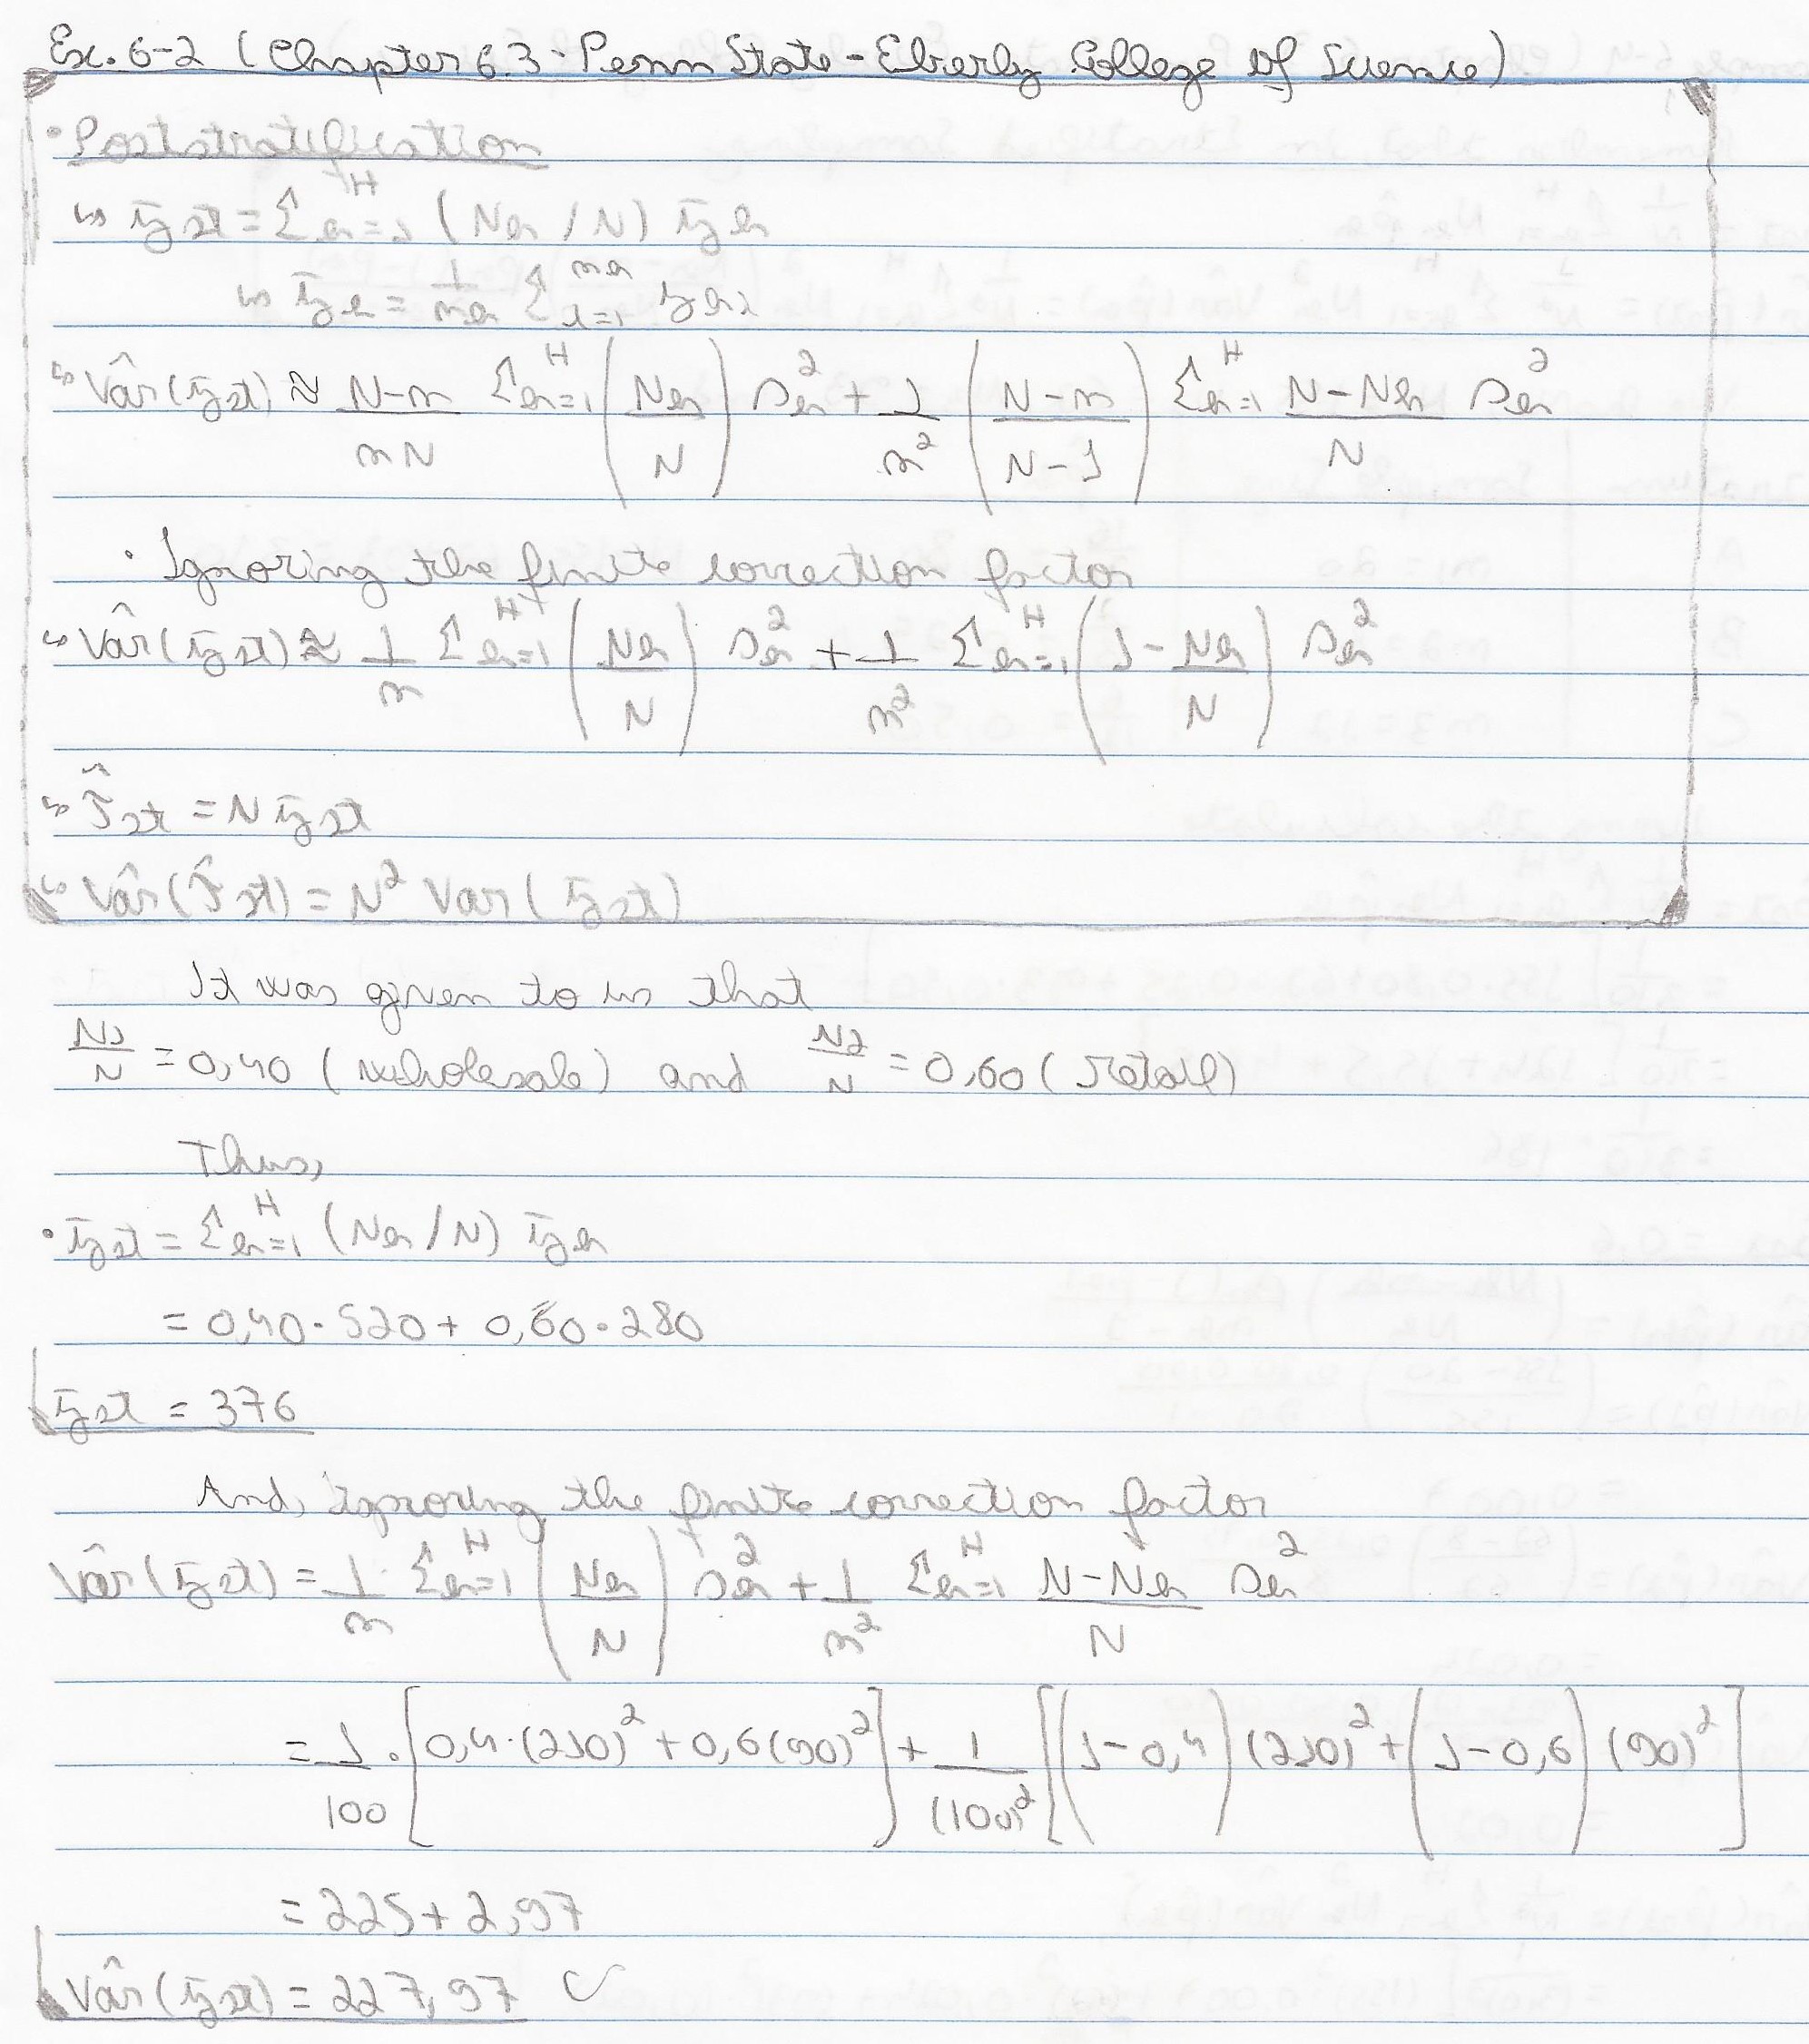 Ex. 6-2 (Chapter 6.3 - Penn State - Eberly College of Science)
• Poststratification
↳ ȳst = Σ h=1 H (Nh / N) ȳh
↳ ȳh = 1/nh Σ i=1 nh yhi
↳ Vâr(ȳst) ≈ N-n/nN Σ h=1 H (Nh/N) sh² + 1/n² (N-n/N-1) Σ h=1 H N-Nh/N sh²
• Ignoring the finite correction factor
↳ Vâr(ȳst) ≈ 1/n Σ h=1 H (Nh/N) sh² + 1/n² Σ h=1 H (1-Nh/N) sh²
↳ τ̂st = Nȳst
↳ Vâr(τ̂st) = N² Var(ȳst)
It was given to us that
N1/N = 0,40 (wholesale) and N2/N = 0,60 (retail)
Thus,
• ȳst = Σ h=1 H (Nh/N) ȳh
= 0,40 · 520 + 0,60 · 280
ȳst = 376
And, ignoring the finite correction factor
Vâr(ȳst) = 1/n Σ h=1 H (Nh/N) sh² + 1/n² Σ h=1 H N-Nh/N sh²
= 1/100 · [0,4·(210)² + 0,6(90)²] + 1/(100)² [(1-0,4)(210)² + (1-0,6)(90)²]
= 225 + 2,97
Vâr(ȳst) = 227,97 ✓